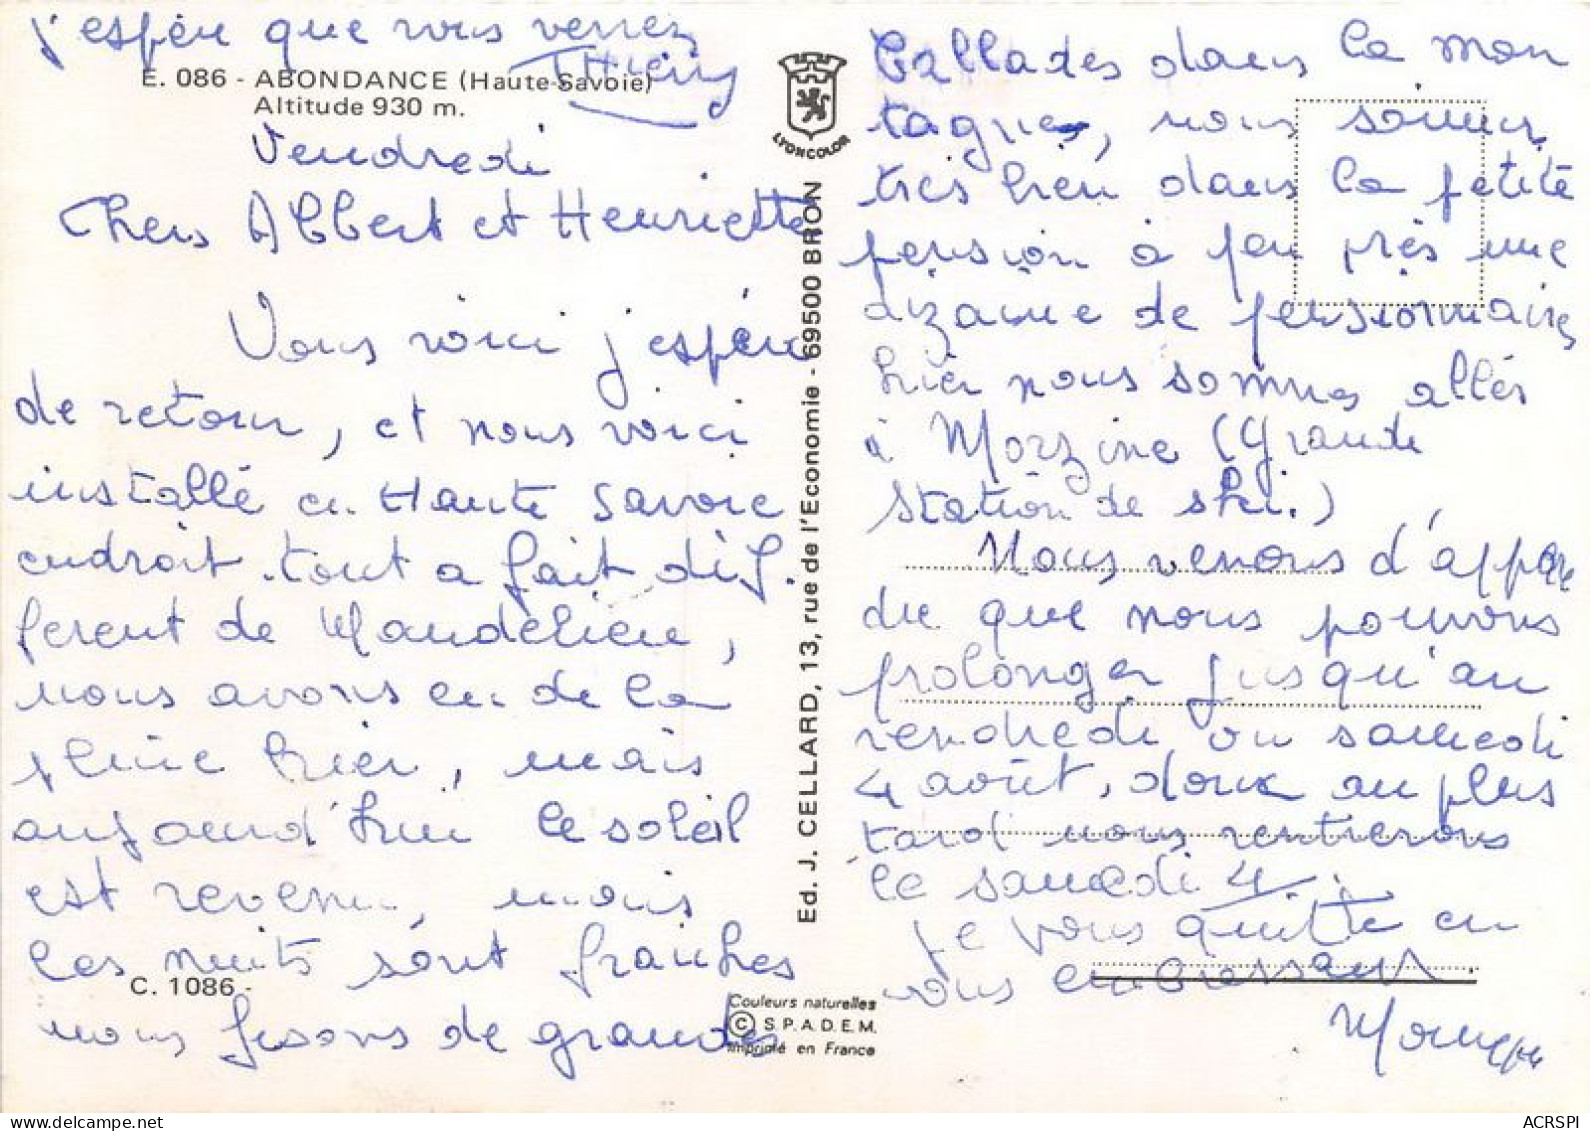 j'espère que vous verrez
Thierry
E. 086 - ABONDANCE (Haute-Savoie)
Altitude 930 m.
Vendredi
Chers Albert et Henriette
Vous voici j'espère
de retour, et nous voici
installé en Haute Savoie
endroit tout a fait dif.
ferent de Mandelieu,
nous avons eu de la
pluie hier, mais
aujourd'hui le soleil
est revenu, mais
les nuits sont fraiches
C. 1086 -
nous fesons de grandes
LYONCOLOR
Ed. J. CELLARD, 13, rue de l'Economie - 69500 BRON
Couleurs naturelles
© S.P.A.D.E.M.
Imprimé en France
ballades dans la mon
tagne, nous sommes
très bien dans la petite
pension à peu près une
dizaine de pensionnaires
hier nous sommes allés
à Morzine (Grande
station de ski.)
Nous venons d'appre
du que nous pouvons
prolonger jusqu'au
vendredi ou samedi
4 août, donc au plus
tard nous rentrerons
le samedi 4.
je vous quitte en
vous embrassant
ACRSPI